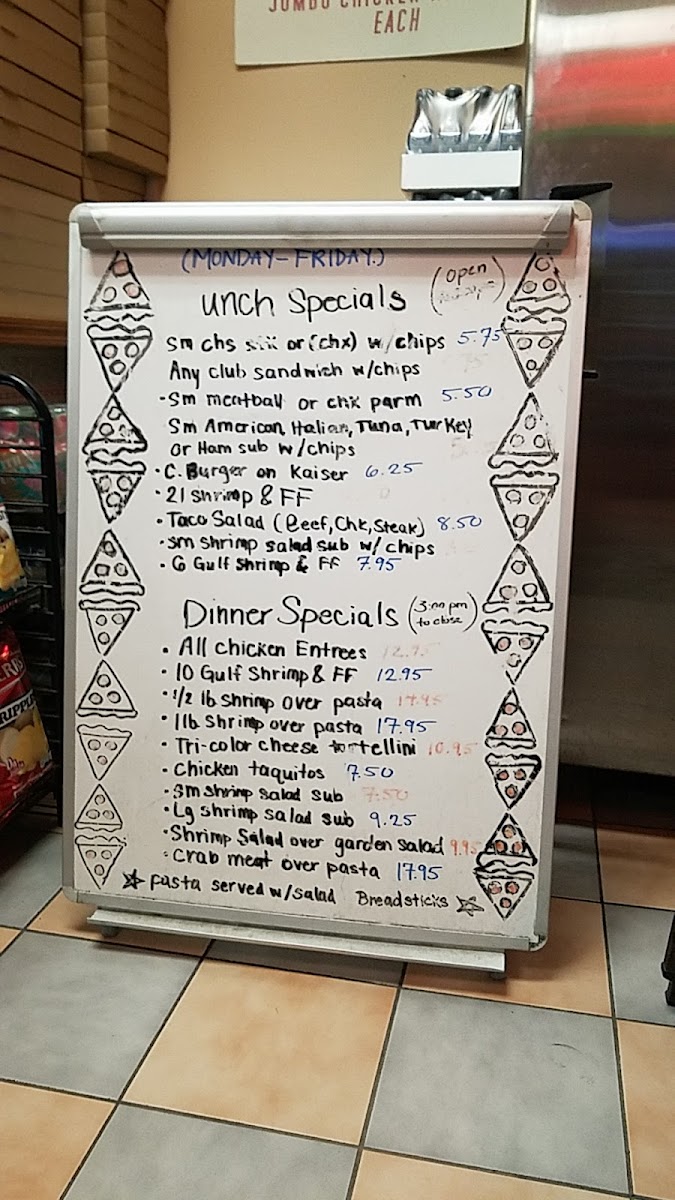 JUMBO CHICKEN
EACH
(MONDAY-FRIDAY.)
unch Specials (open
Sm chs or (chx) w/chips 5.75
Any club sandwich w/chips
-Sm meatball or chk parm 5.50
Sm American, Italian, Tuna, Turkey
or Ham sub w/chips
• C. Burger on Kaiser 6.25
• 21 Shrimp & FF
• Taco Salad (Beef, Chk, Steak) 8.50
• sm Shrimp salad sub w/ chips
• 6 Gulf Shrimp & FF 7.95
Dinner Specials (3:00 pm to close)
• All chicken Entrees 12.95
• 10 Gulf Shrimp & FF 12.95
• 1/2 lb Shrimp over pasta 14.95
• 1lb Shrimp over pasta 17.95
• Tri-color cheese tortellini 10.95
• Chicken taquitos 7.50
• Sm shrimp salad sub 7.50
• Lg shrimp salad sub 9.25
• Shrimp Salad over garden salad 9.95
• Crab meat over pasta 17.95
Pasta served w/salad Breadsticks